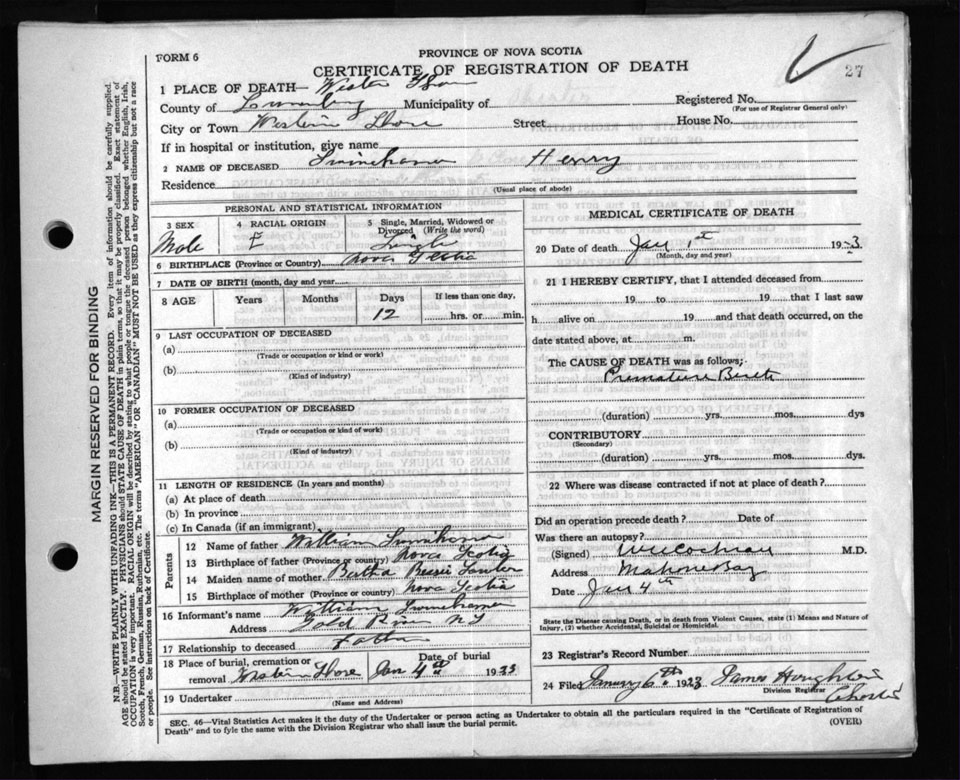 PROVINCE OF NOVA SCOTIA
FORM 6
CERTIFICATE OF REGISTRATION OF DEATH
27
1 PLACE OF DEATH— Western Shore
County of Lunenburg Municipality of
Registered No.
(For use of Registrar General only)
City or Town Western Shore Street House No.
If in hospital or institution, give name
2 NAME OF DECEASED Swinehamer Henry
Residence
(Usual place of abode)
PERSONAL AND STATISTICAL INFORMATION
3 SEX
Male
4 RACIAL ORIGIN
E
5 Single, Married, Widowed or
Divorced (Write the word)
Single
6 BIRTHPLACE (Province or Country) Nova Scotia
7 DATE OF BIRTH (month, day and year
8 AGE Years Months Days If less than one day,
12 hrs. or min.
9 LAST OCCUPATION OF DECEASED
(a)
(Trade or occupation or kind or work)
(b)
(Kind of industry)
10 FORMER OCCUPATION OF DECEASED
(a)
(Trade or occupation or kind of work)
(b)
(Kind of industry)
11 LENGTH OF RESIDENCE (In years and months)
(a) At place of death
(b) In province
(c) In Canada (if an immigrant)
Parents
12 Name of father William Swinehamer
13 Birthplace of father (Province or country) Nova Scotia
14 Maiden name of mother Bertha
15 Birthplace of mother (Province or country) Nova Scotia
16 Informant's name William Swinehamer
Address Gold River NS
17 Relationship to deceased Father
18 Place of burial, cremation or Date of burial
removal Western Shore Jan 4th 1933
19 Undertaker
(Name and Address)
MEDICAL CERTIFICATE OF DEATH
20 Date of death Jan 1st 1933
(Month, day and year)
21 I HEREBY CERTIFY, that I attended deceased from
19 to 19 that I last saw
h alive on 19 and that death occurred, on the
date stated above, at m.
The CAUSE OF DEATH was as follows;
Premature Birth
(duration) yrs. mos. dys
CONTRIBUTORY
(Secondary)
(duration) yrs. mos. dys.
22 Where was disease contracted if not at place of death?
Did an operation precede death? Date of
Was there an autopsy?
(Signed) Cochran M.D.
Address Mahone Bay
Date Jan 4th
State the Disease causing Death, or in death from Violent Causes, state (1) Means and Nature
of Injury, (2) whether Accidental, Suicidal or Homicidal.
23 Registrar's Record Number
24 Filed January 6th 1933 James
Division Registrar
Chester
SEC. 46—Vital Statistics Act makes it the duty of the Undertaker or person acting as Undertaker to obtain all the particulars required in the "Certificate of Registration of
Death" and to fyle the same with the Division Registrar who shall issue the burial permit.
(OVER)
MARGIN RESERVED FOR BINDING
N.B.—WRITE PLAINLY WITH UNFADING INK—THIS IS A PERMANENT RECORD. Every item of information should be carefully supplied.
AGE should be stated EXACTLY. PHYSICIANS should STATE CAUSE OF DEATH in plain terms, so that it may be properly classified. Exact statement of
OCCUPATION is very important. RACIAL ORIGIN will be described by stating to what people or tongue the deceased person belonged whether English, Irish,
Scotch, French, German, Russian, Ruthenian, etc. The terms "AMERICAN" OR "CANADIAN" MUST NOT BE USED as they express citizenship but not a race
or people. See instructions on back of Certificate.